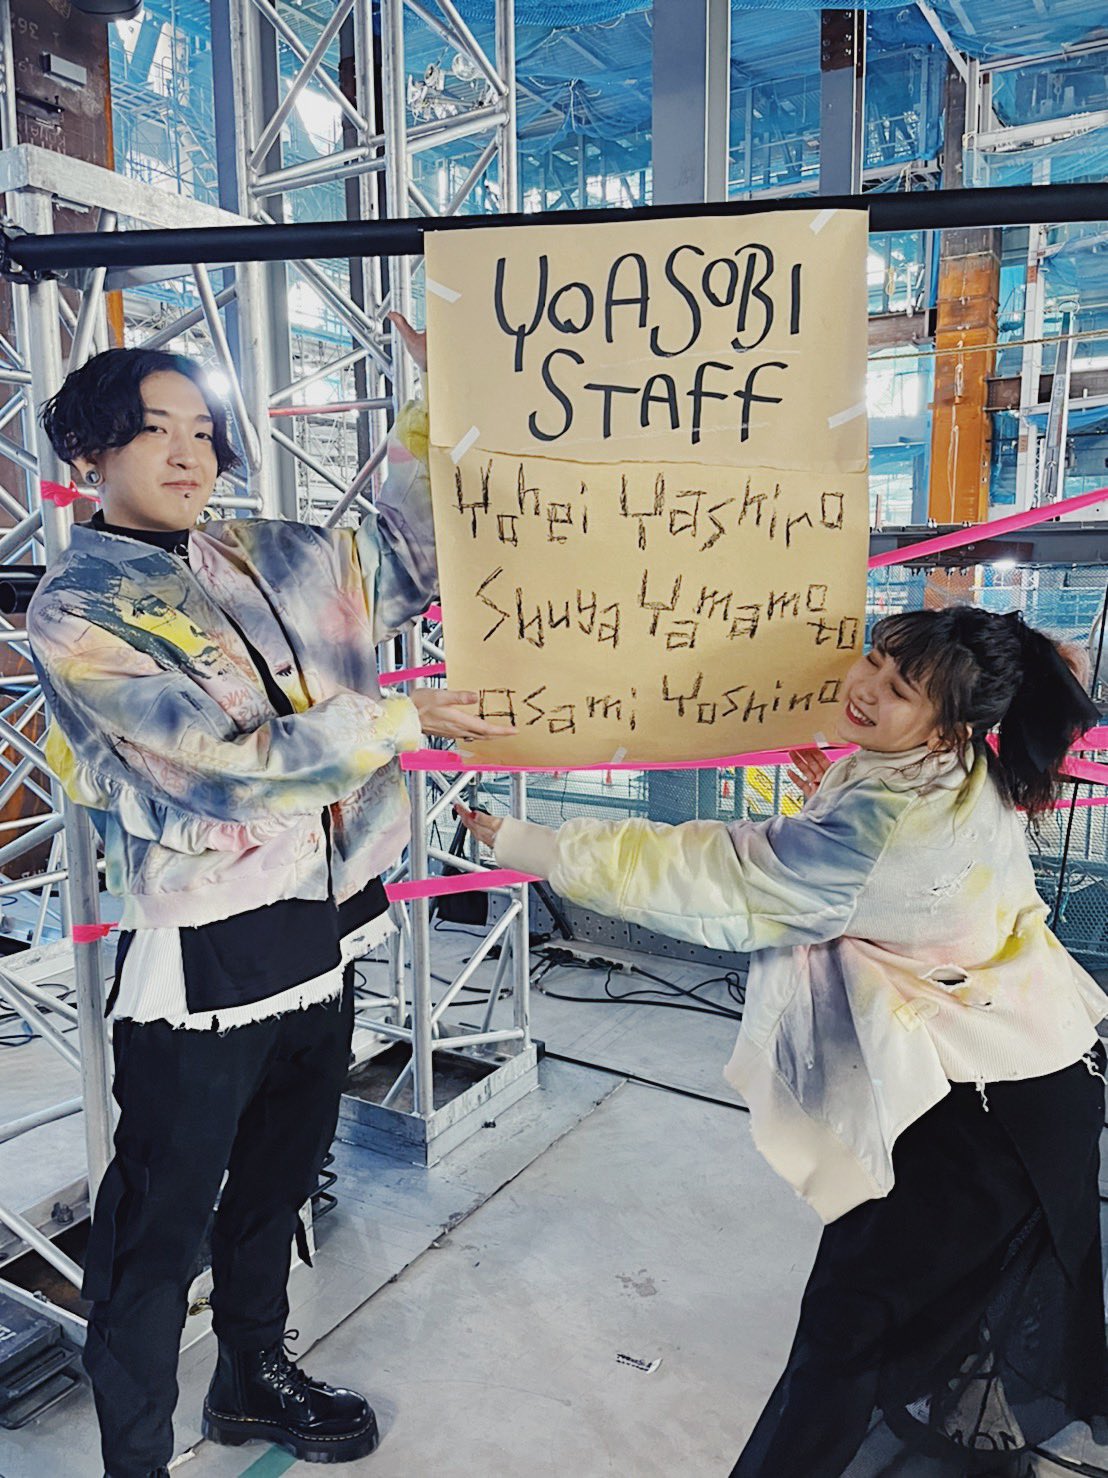 YOASOBI
STAFF
Yohei Yashiro
Syuya Yamamoto
Asami Yoshino